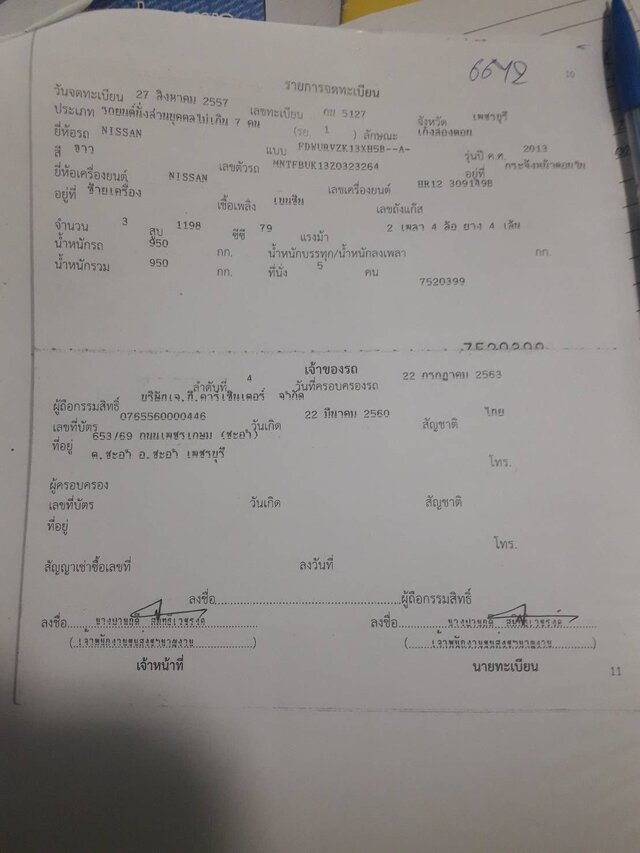 6672
10
รายการจดทะเบียน
วันจดทะเบียน 27 สิงหาคม 2557 เลขทะเบียน กน 5127 จังหวัด เพชรบุรี
ประเภท รถยนต์นั่งส่วนบุคคลไม่เกิน 7 คน (รย 1 ) ลักษณะ เก๋งสองตอน
ยี่ห้อรถ NISSAN แบบ FDWURVZK13XH5B--A- รุ่นปี ค.ศ. 2013
สี ขาว เลขตัวรถ MNTFBUK13Z0323264 อยู่ที่ กระจังหน้าตอนใน
ยี่ห้อเครื่องยนต์ NISSAN เลขเครื่องยนต์ HR12 309149B
อยู่ที่ ซ้ายเครื่อง เชื้อเพลิง เบนซิน เลขถังแก๊ส
จำนวน 3 สูบ 1198 ซีซี 79 แรงม้า 2 เพลา 4 ล้อ ยาง 4 เส้น
น้ำหนักรถ 950 กก. น้ำหนักบรรทุก/น้ำหนักลงเพลา กก.
น้ำหนักรวม 950 กก. ที่นั่ง 5 คน
7520399
7520399
เจ้าของรถ
ลำดับที่ 4 วันที่ครอบครองรถ 22 กรกฎาคม 2563
ผู้ถือกรรมสิทธิ์ บริษัทเจ.ที.คาร์เซ็นเตอร์ จำกัด
เลขที่บัตร 0765560000446 วันเกิด 22 มีนาคม 2560 สัญชาติ ไทย
ที่อยู่ 653/69 ถนนเพชรเกษม (ชะอำ)
ต.ชะอำ อ.ชะอำ เพชรบุรี
โทร.
ผู้ครอบครอง
เลขที่บัตร วันเกิด สัญชาติ
ที่อยู่
โทร.
สัญญาเช่าซื้อเลขที่ ลงวันที่
ลงชื่อ ผู้ถือกรรมสิทธิ์
ลงชื่อ ลงชื่อ
(เจ้าพนักงานขนส่งชำนาญงาน) (เจ้าพนักงานขนส่งชำนาญงาน)
เจ้าหน้าที่ นายทะเบียน
11